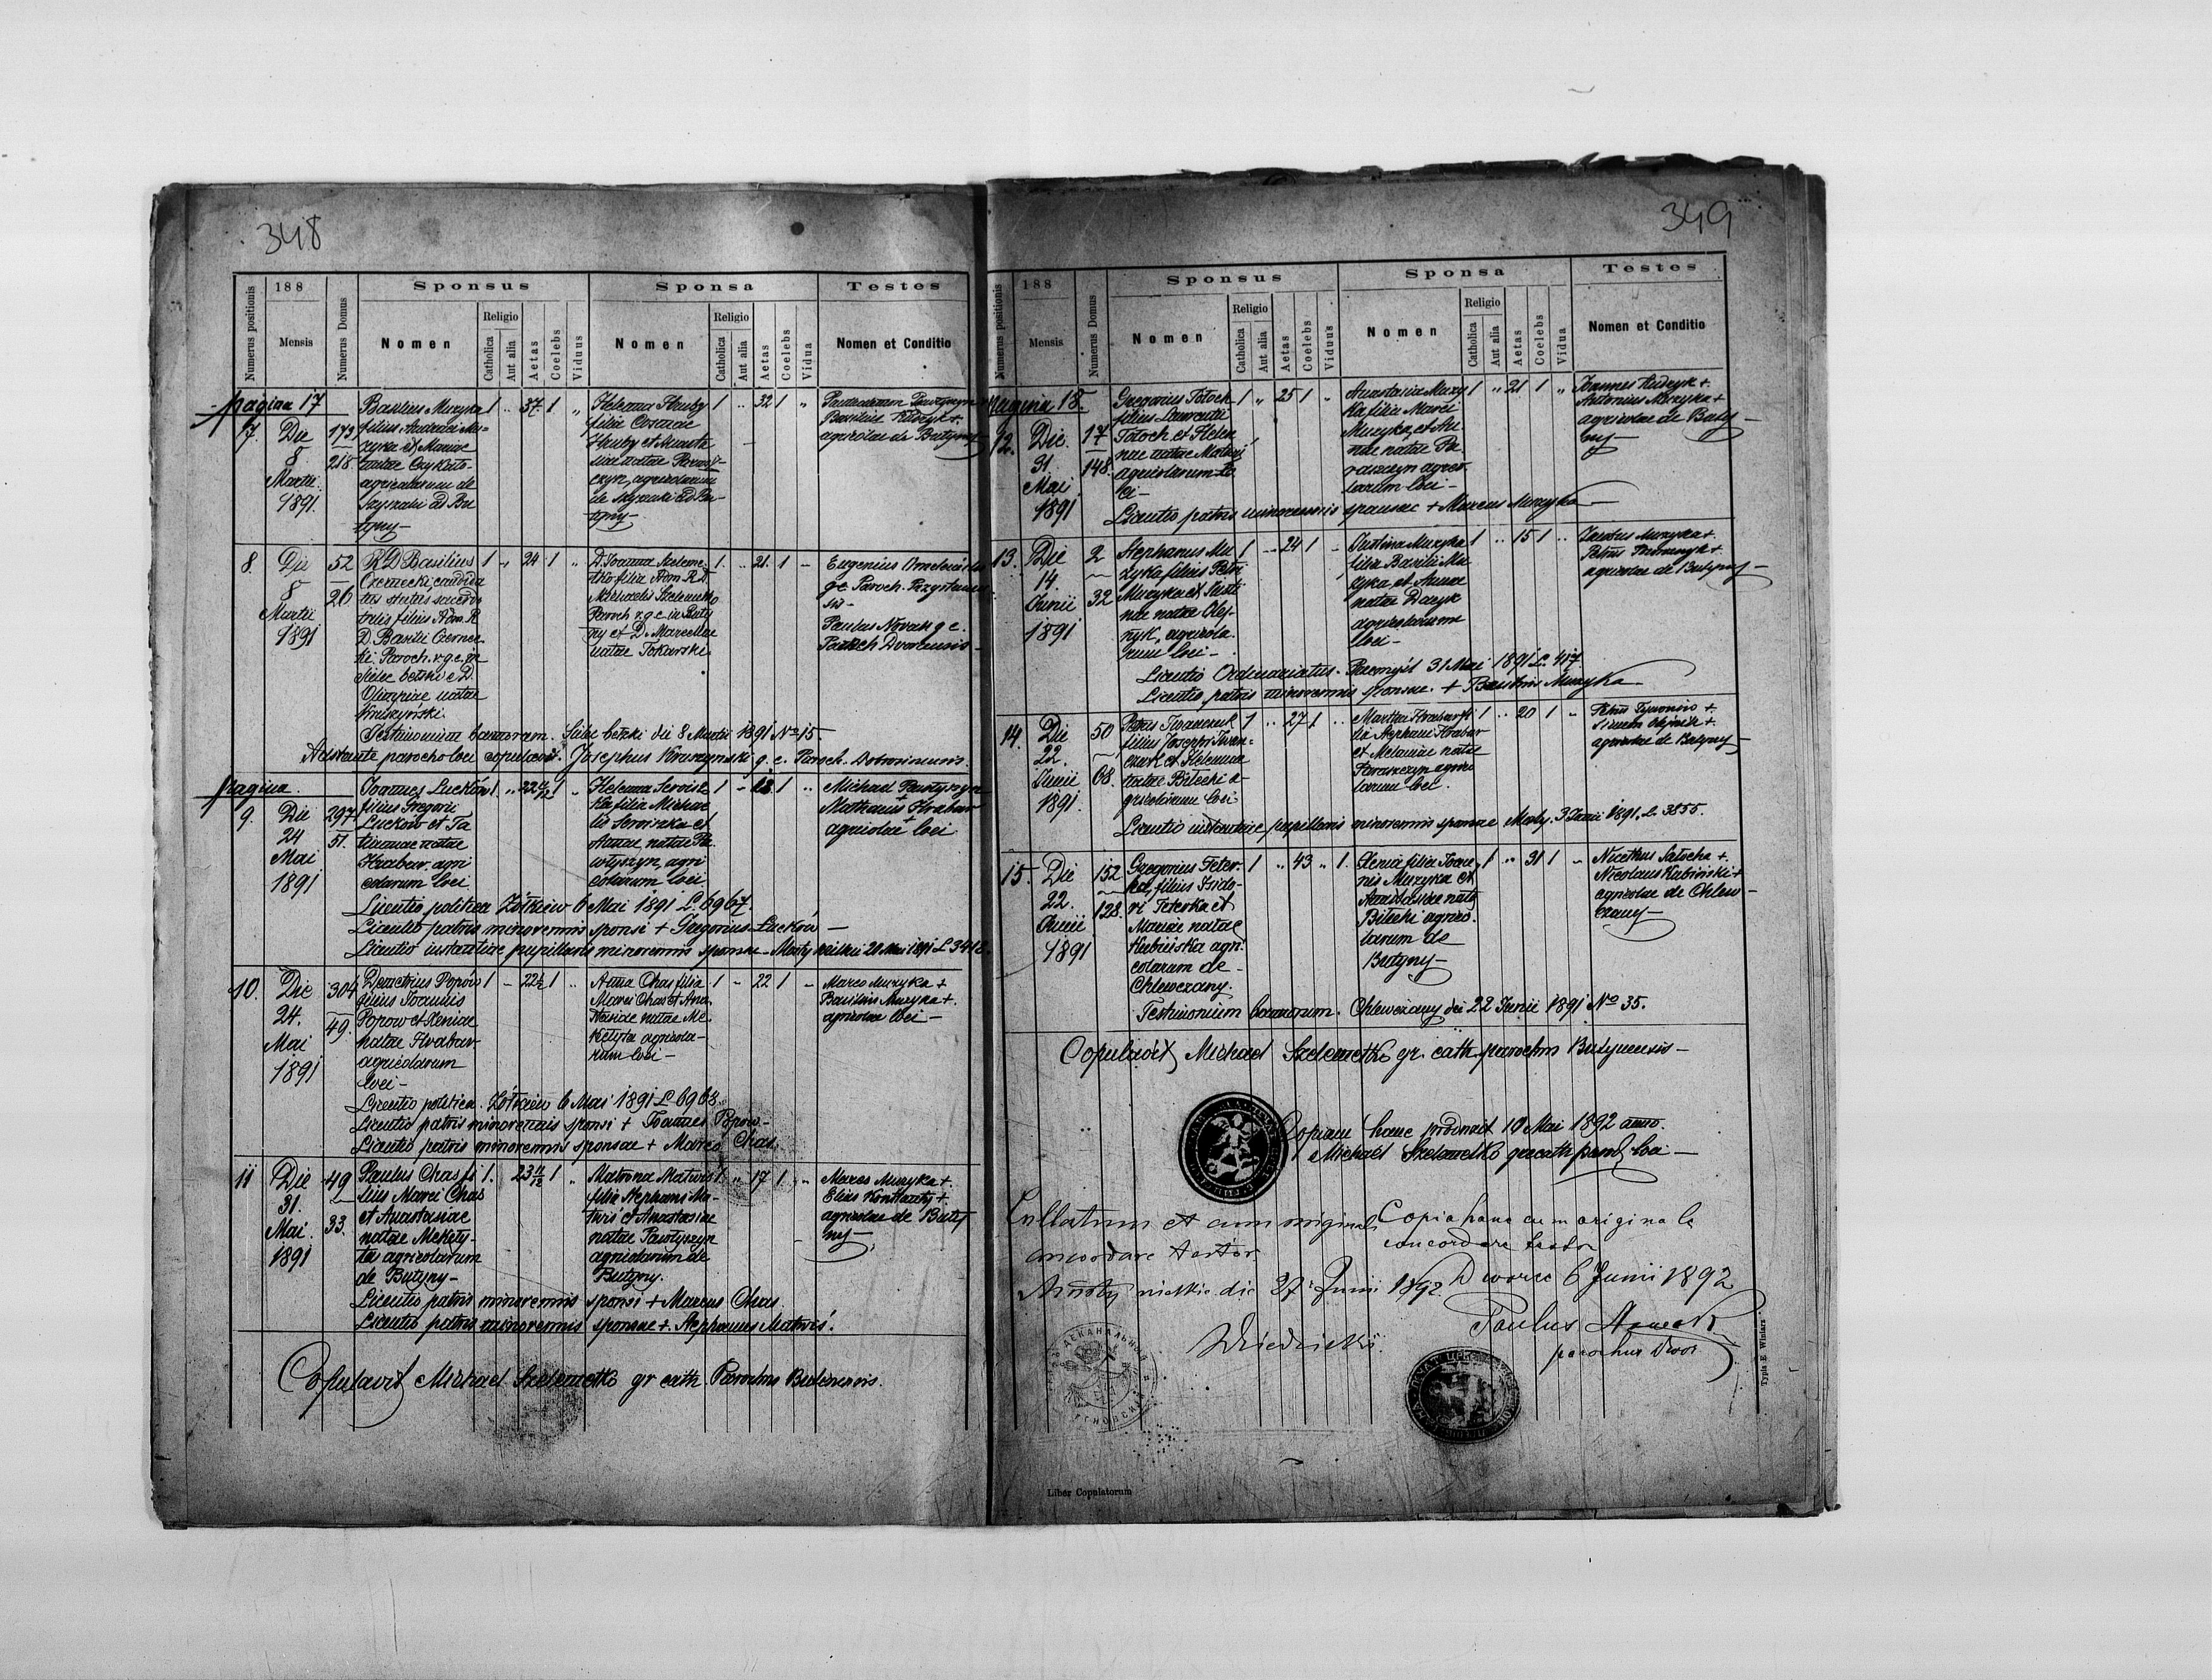 348
Numerus positionis
188
Mensis
Numerus Domus
Sponsus
Nomen
Religio
Catholica
Aut alia
Aetas
Coelebs
Viduus
Sponsa
Nomen
Religio
Catholica
Aut alia
Aetas
Coelebs
Vidua
Testes
Nomen et Conditio
pagina 17
7. Die 8 Martii 1891.
173
218.
Basilius Muzyka
filius Andreae Mu-
zyka et Mariae
natae
agricolarum de
ad Bu
tyny—
1 „ 37. 1 „
Helena Hruby
filia Cosmae
Hruby et Anasta
siae natae
agricolarum
de ad Bu-
tyny—
1 „ 32 1 „
Basilius Kudryk +
agricolae de Butyny—
8. Die 8 Martii 1891
52
26
R. D. Basilius
Czernecki, candida
tus status sacerdo
talis filius Adm. R.
D. Basilii Czernec
ki Paroch. r. g. c. in
Sielec betski e D.
Olimpiae natae
Kruszyński.
1 „ 24 1 „
D. Joanna Szeleme-
tko filia Adm. R. D.
Michaelis Szelemetko
Paroch r. g. c. in Buty
ny et D. Marcellae
natae Tokarski.
1. „ 21. 1 –
Eugenius
gc Paroch.
Paulus Novak g c.
Paroch Dvorcensis—
Testimonium bannorum. Sielec betski die 8 Martii 1891 No 15—
Adstante parocho loci copulavit. Josephus Kruszynski g. c. Paroch. Dobrosinensis.
pagina.
9. Die 24 Mai 1891
297
51.
Joannes Lucków
filius Gregorii
Luckow et Ta
tiannae natae
Hrabar agri
colarum loci
1. „ 22 1 „
Helena Serwisz
ka filia Michae
lis Serwiszka et
Annae natae Pa
wtyszyn, agri
colarum loci
1 – 18. 1 „
Michael Pawtyszyn
+
Mathaeus Hrabar
+
agricolae loci
Licentio politica Żółkiew 6 Mai 1891 L. 6967.
Licentio patris minorennis sponsi + Gregorius Luckow—
Licentio instantiae pupillaris minorennis sponsae – Mosty wielkie 20 Mai 1891 L 3418.
10. Die 24. Mai 1891
304
49.
Demetrius Popów
filius Joannis
Popow et Xeniae
natae Hrabar
agricolarum
loci—
1 – 22 1 „
Anna Chas filia
Marci Chas et Ana
stasiae natae Me
ketyta agricola-
rum loci—
1 – 22 1 –
Marco Muzyka +
Basilius Muzyka +
agricolae loci—
Licentio politica. Żółkiew 6 Mai 1891 L 6968.
Licentio patris minorennis sponsi + Joannes Popow—
Licentio patris minorennis sponsae + Marco Chas.
11 Die 31. Mai. 1891
49
33.
Paulus Chas fi
lius Marci Chas
et Anastasiae
natae Mekety-
ta agricolarum
de Butyny—
1. 23 11/12 1 „
Matrona Matwis
filia Stephani Ma-
twis et Anastasiae
natae Pawtyszyn
agricolarum de
Butyny.
1. „ 17 1 „
Marcus Muzyka +
Elias Konstanty +
agricolae de Buty
ny—
Licentio patris minorennis sponsi + Marcus Chas.
Licentio patris minorennis sponsae + Stephanus Matwis.
Copulavit Michael Szelemetko gr cath Parochus Butinensis.
349
Numerus positionis
188
Mensis
Numerus Domus
Sponsus
Nomen
Religio
Catholica
Aut alia
Aetas
Coelebs
Viduus
Sponsa
Nomen
Religio
Catholica
Aut alia
Aetas
Coelebs
Vidua
Testes
Nomen et Conditio
pagina 18.
12. Die 31. Mai 1891
17
148.
Gregorius Totoch
filius Laurentii
Totoch et Helen
nae natae
agricolarum lo
ci—
1 „ 25 1 „
Anastasia Muzy
ka filia Marci
Muzyka, et An
nae natae Pa
raszczyn agrico
larum loci—
1 „ 21 1 „
Joannes Kudryk +
Antonius Muzyka +
agricolae de Buty
ny—
Licentio patris minorennis sponsae + Marcus Muzyka—
13. Die 14. Junii 1891
2
32
Stephanus Mu
zyka filius Petri
Muzyka et Justi
nae natae Olej-
nyk, agricola
rum loci—
1 – 24 1 –
Justina Muzyka
filia Basilii Mu
zyka, et Annae
natae
agricolarum
loci—
1 „ 15 1 „
Jacobus Muzyka +
Petrus
agricolae de Butyny—
Licentio Ordinariatus. Przemyśl 31 Mai 1891 L. 417.
Licentio patris minorennis sponsae. + Basilius Muzyka—
14. Die 22. Junii 1891.
50
68.
Petrus Iwanczuk
filius Josephi Iwan-
czuk et Helennae
natae Bilecki a-
gricolarum loci
1 „ 27 1 „
Martha Hrabar fi
lia Stephani Hrabar
et Melaniae natae
Paraszczyn agrico
larum loci.
1 „ 20 1 „
Petrus +
Simeon Olejnik +
agricolae de Butyny—
Licentio instantiae pupillaris minorennis sponsae Mosty. 3 Junii 1891. L. 3855.
15. Die 22. Junii 1891
152
128.
Gregorius Peter-
ka, filius Isido-
ri Peterka et
Mariae natae
Kubinska agri
colarum de
Chlewczany.
1 „ 43 „ 1.
Xenia filia Joan
nis Muzyka et
Anastasiae nata
Bilecki agrico.
larum de
Butyny—
1 „ 31 1 „
Nicethus Salocha +
Nicolaus Kubinski +
agricolae de Chlew
czany—
Testimonium bannorum. Chlewczany die 22 Junii 1891 No 35.
Copulavit Michael Szelemetko gr. cath. parochus Butynensis—
Copiam hanc prodoxit 10 Mai 1892 anno.
Michael Szelemetko gr cath paroch loci—
Collatum et cum originali
concordare testor.
Mosty wielkie die 27 Junii 1892
Copia hanc cum originale
concordare testor
Dworce 6 Junii 1892
Paulus Nowak
parochus Dwor
Liber Copulatorum
Typis E. Winiarz